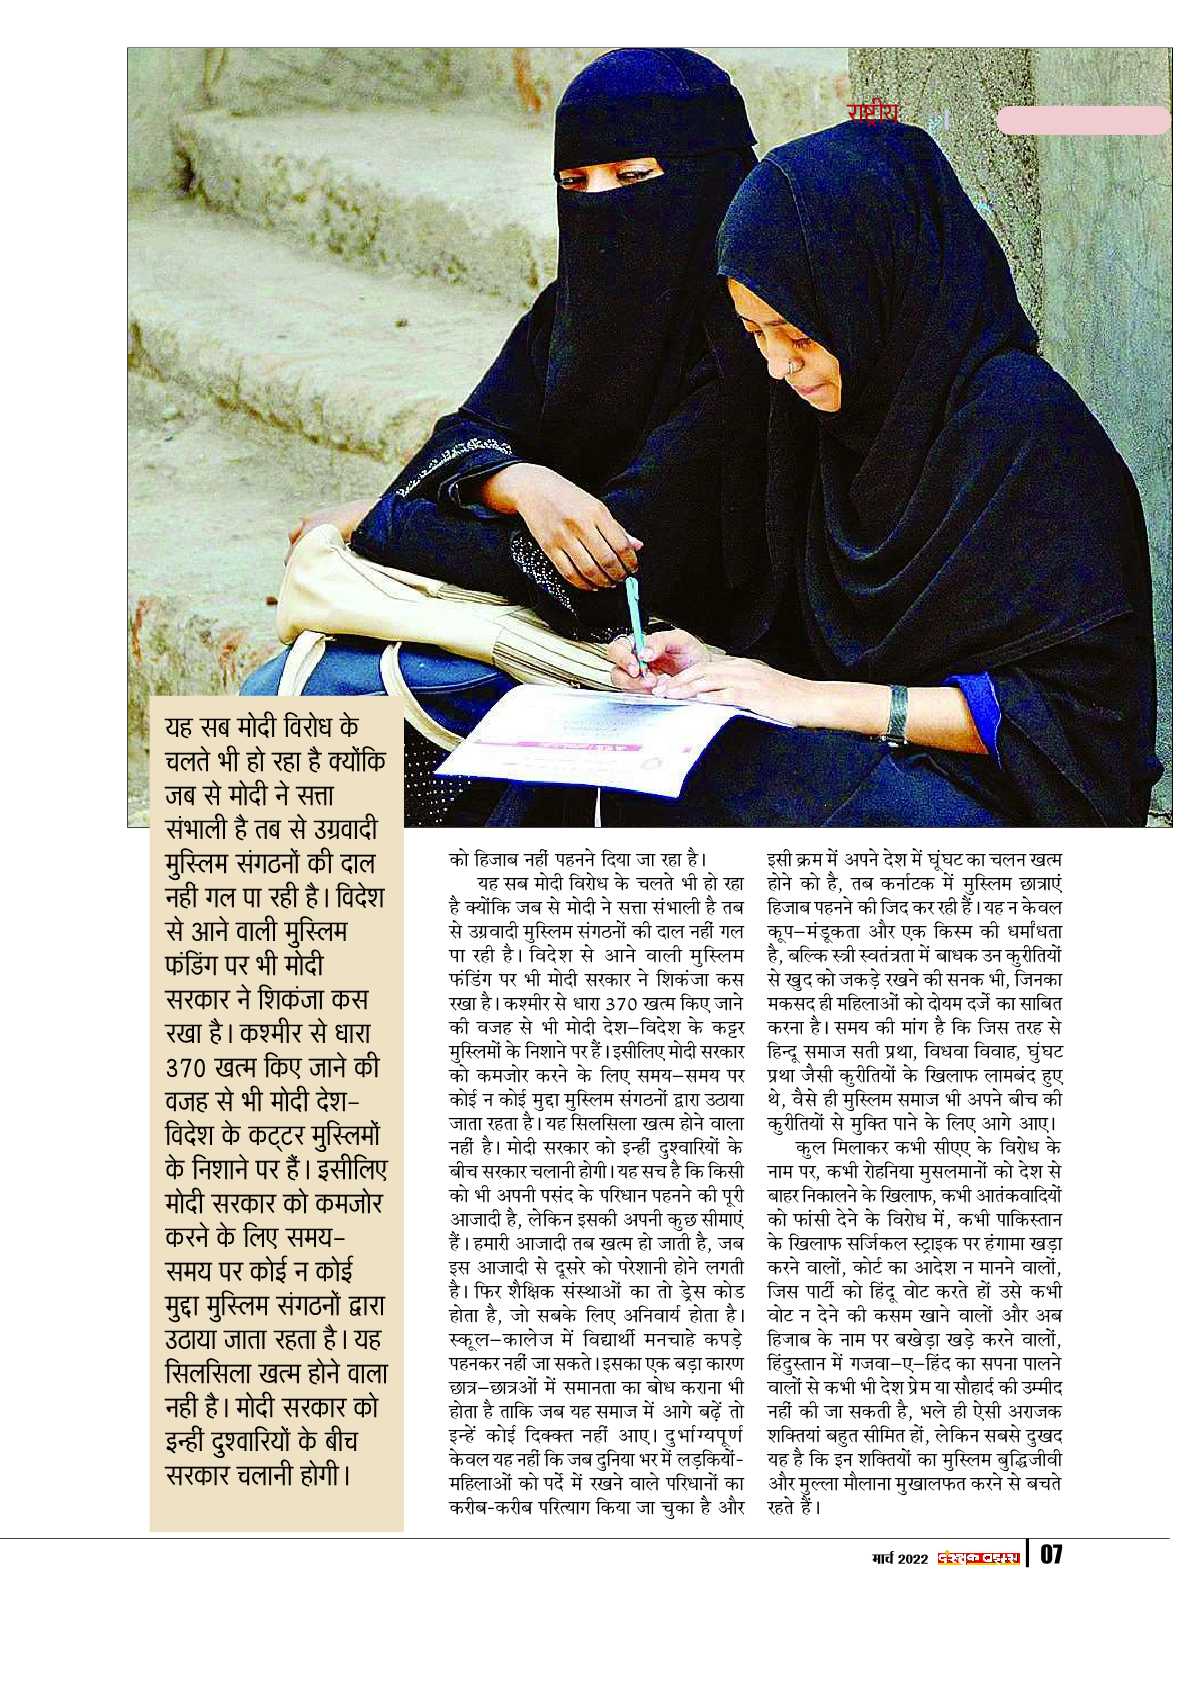 राष्ट्रीय
यह सब मोदी विरोध के
चलते भी हो रहा है क्योंकि
जब से मोदी ने सत्ता
संभाली है तब से उग्रवादी
मुस्लिम संगठनों की दाल
नही गल पा रही है। विदेश
से आने वाली मुस्लिम
फंडिंग पर भी मोदी
सरकार ने शिकंजा कस
रखा है। कश्मीर से धारा
370 खत्म किए जाने की
वजह से भी मोदी देश–
विदेश के कट्टर मुस्लिमों
के निशाने पर हैं। इसीलिए
मोदी सरकार को कमजोर
करने के लिए समय–
समय पर कोई न कोई
मुद्दा मुस्लिम संगठनों द्वारा
उठाया जाता रहता है। यह
सिलसिला खत्म होने वाला
नही है। मोदी सरकार को
इन्ही दुश्वारियों के बीच
सरकार चलानी होगी।
को हिजाब नहीं पहनने दिया जा रहा है।
यह सब मोदी विरोध के चलते भी हो रहा
है क्योंकि जब से मोदी ने सत्ता संभाली है तब
से उग्रवादी मुस्लिम संगठनों की दाल नहीं गल
पा रही है। विदेश से आने वाली मुस्लिम
फंडिंग पर भी मोदी सरकार ने शिकंजा कस
रखा है। कश्मीर से धारा 370 खत्म किए जाने
की वजह से भी मोदी देश–विदेश के कट्टर
मुस्लिमों के निशाने पर हैं। इसीलिए मोदी सरकार
को कमजोर करने के लिए समय–समय पर
कोई न कोई मुद्दा मुस्लिम संगठनों द्वारा उठाया
जाता रहता है। यह सिलसिला खत्म होने वाला
नहीं है। मोदी सरकार को इन्हीं दुश्वारियों के
बीच सरकार चलानी होगी। यह सच है कि किसी
को भी अपनी पसंद के परिधान पहनने की पूरी
आजादी है, लेकिन इसकी अपनी कुछ सीमाएं
हैं। हमारी आजादी तब खत्म हो जाती है, जब
इस आजादी से दूसरे को परेशानी होने लगती
है। फिर शैक्षिक संस्थाओं का तो ड्रेस कोड
होता है, जो सबके लिए अनिवार्य होता है।
स्कूल–कालेज में विद्यार्थी मनचाहे कपड़े
पहनकर नहीं जा सकते। इसका एक बड़ा कारण
छात्र–छात्रओं में समानता का बोध कराना भी
होता है ताकि जब यह समाज में आगे बढ़ें तो
इन्हें कोई दिक्क्त नहीं आए। दुर्भाग्यपूर्ण
केवल यह नहीं कि जब दुनिया भर में लड़कियों-
महिलाओं को पर्दे में रखने वाले परिधानों का
करीब-करीब परित्याग किया जा चुका है और
इसी क्रम में अपने देश में घूंघट का चलन खत्म
होने को है, तब कर्नाटक में मुस्लिम छात्राएं
हिजाब पहनने की जिद कर रही हैं। यह न केवल
कूप–मंडूकता और एक किस्म की धर्मांधता
है, बल्कि स्त्री स्वतंत्रता में बाधक उन कुरीतियों
से खुद को जकड़े रखने की सनक भी, जिनका
मकसद ही महिलाओं को दोयम दर्जे का साबित
करना है। समय की मांग है कि जिस तरह से
हिन्दू समाज सती प्रथा, विधवा विवाह, घुंघट
प्रथा जैसी कुरीतियों के खिलाफ लामबंद हुए
थे, वैसे ही मुस्लिम समाज भी अपने बीच की
कुरीतियों से मुक्ति पाने के लिए आगे आए।
कुल मिलाकर कभी सीएए के विरोध के
नाम पर, कभी रोहनिया मुसलमानों को देश से
बाहर निकालने के खिलाफ, कभी आतंकवादियों
को फांसी देने के विरोध में, कभी पाकिस्तान
के खिलाफ सर्जिकल स्ट्राइक पर हंगामा खड़ा
करने वालों, कोर्ट का आदेश न मानने वालों,
जिस पार्टी को हिंदू वोट करते हों उसे कभी
वोट न देने की कसम खाने वालों और अब
हिजाब के नाम पर बखेड़ा खड़े करने वालों,
हिंदुस्तान में गजवा–ए–हिंद का सपना पालने
वालों से कभी भी देश प्रेम या सौहार्द की उम्मीद
नहीं की जा सकती है, भले ही ऐसी अराजक
शक्तियां बहुत सीमित हों, लेकिन सबसे दुखद
यह है कि इन शक्तियों का मुस्लिम बुद्धिजीवी
और मुल्ला मौलाना मुखालफत करने से बचते
रहते हैं।
मार्च 2022
07